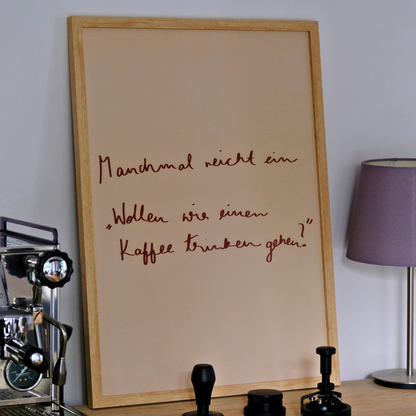 Manchmal reicht ein
„Wollen wir einen
Kaffee trinken gehen?"